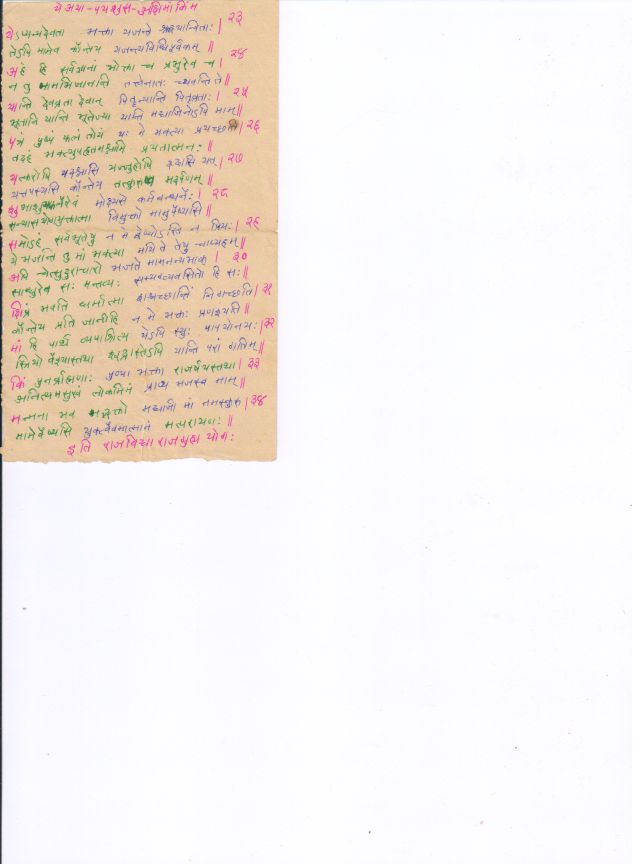 ये अ या - प य श शु स - अ क्षि मां किं म
येऽप्यन्यदेवता भक्ता यजन्ते श्रद्धयान्विताः | २३
तेऽपि मामेव कौन्तेय यजन्त्यविधिपूर्वकम् ||
अहं हि सर्वयज्ञानां भोक्ता च प्रभुरेव च | २४
न तु मामभिजानन्ति तत्त्वेनातः च्यवन्ति ते ||
यान्ति देवव्रता देवान् पितॄन्यान्ति पितृव्रताः | २५
भूतानि यान्ति भूतेज्या यान्ति मद्याजिनोऽपि माम् ||
पत्रं पुष्पं फलं तोयं यः मे भक्त्या प्रयच्छति २६
तदहं भक्त्युपहृतमश्नामि प्रयतात्मनः ||
यत्करोषि यदश्नासि यज्जुहोषि ददासि यत् | २७
यत्तपस्यसि कौन्तेय तत्कुरुष्व मदर्पणम् ||
शुभाशुभफलैरेवं मोक्ष्यसे कर्मबन्धनैः | २८
सन्यासयोगयुक्तात्मा विमुक्तो मामुपैष्यसि ||
समोऽहं सर्वभूतेषु न मे द्वेष्योऽस्ति न प्रियः | २९
ये भजन्ति तु मां भक्त्या मयि ते तेषु चाप्यहम् ||
अपि चेत्सुदुराचारो भजते मामनन्यभाक् | ३०
साधुरेव सः मन्तव्यः सम्यग्व्यवसितो हि सः ||
क्षिप्रं भवति धर्मात्मा शश्वच्छान्तिं निगच्छति | ३१
कौन्तेय प्रति जानीहि न मे भक्तः प्रणश्यति ||
मां हि पार्थ व्यपाश्रित्य येऽपि स्युः पापयोनयः | ३२
स्त्रियो वैश्यास्तथा शूद्रास्तेऽपि यान्ति परां गतिम् ||
किं पुनर्ब्राह्मणाः पुण्या भक्ता राजर्षयस्तथा | ३३
अनित्यमसुखं लोकमिमं प्राप्य भजस्व माम् ||
मन्मना भव मद्भक्तो मद्याजी मां नमस्कुरु | ३४
मामेवैष्यसि युक्त्वैवमात्मानं मत्परायणः ||
इति राजविद्याराजगुह्य योगः